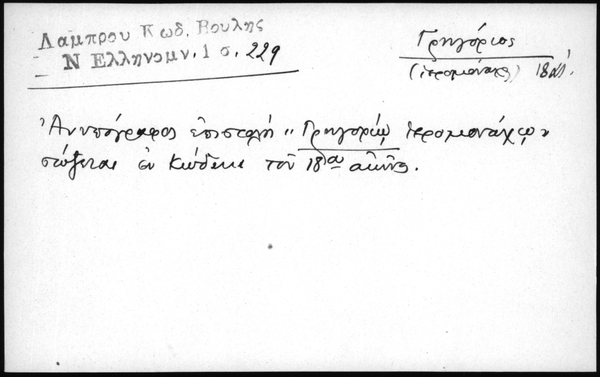 Λαμπρου Κωδ. Βουλης
Ν Ελληνομν. 1 σ. 229
Γρηγόριος
(ἱερομόναχος) 18 αἰ.
Ἀνυπόγραφος ἐπιστολή "Γρηγορίῳ ἱερομονάχῳ"
σώζεται ἐν Κώδικι τοῦ 18ου αἰῶνος.